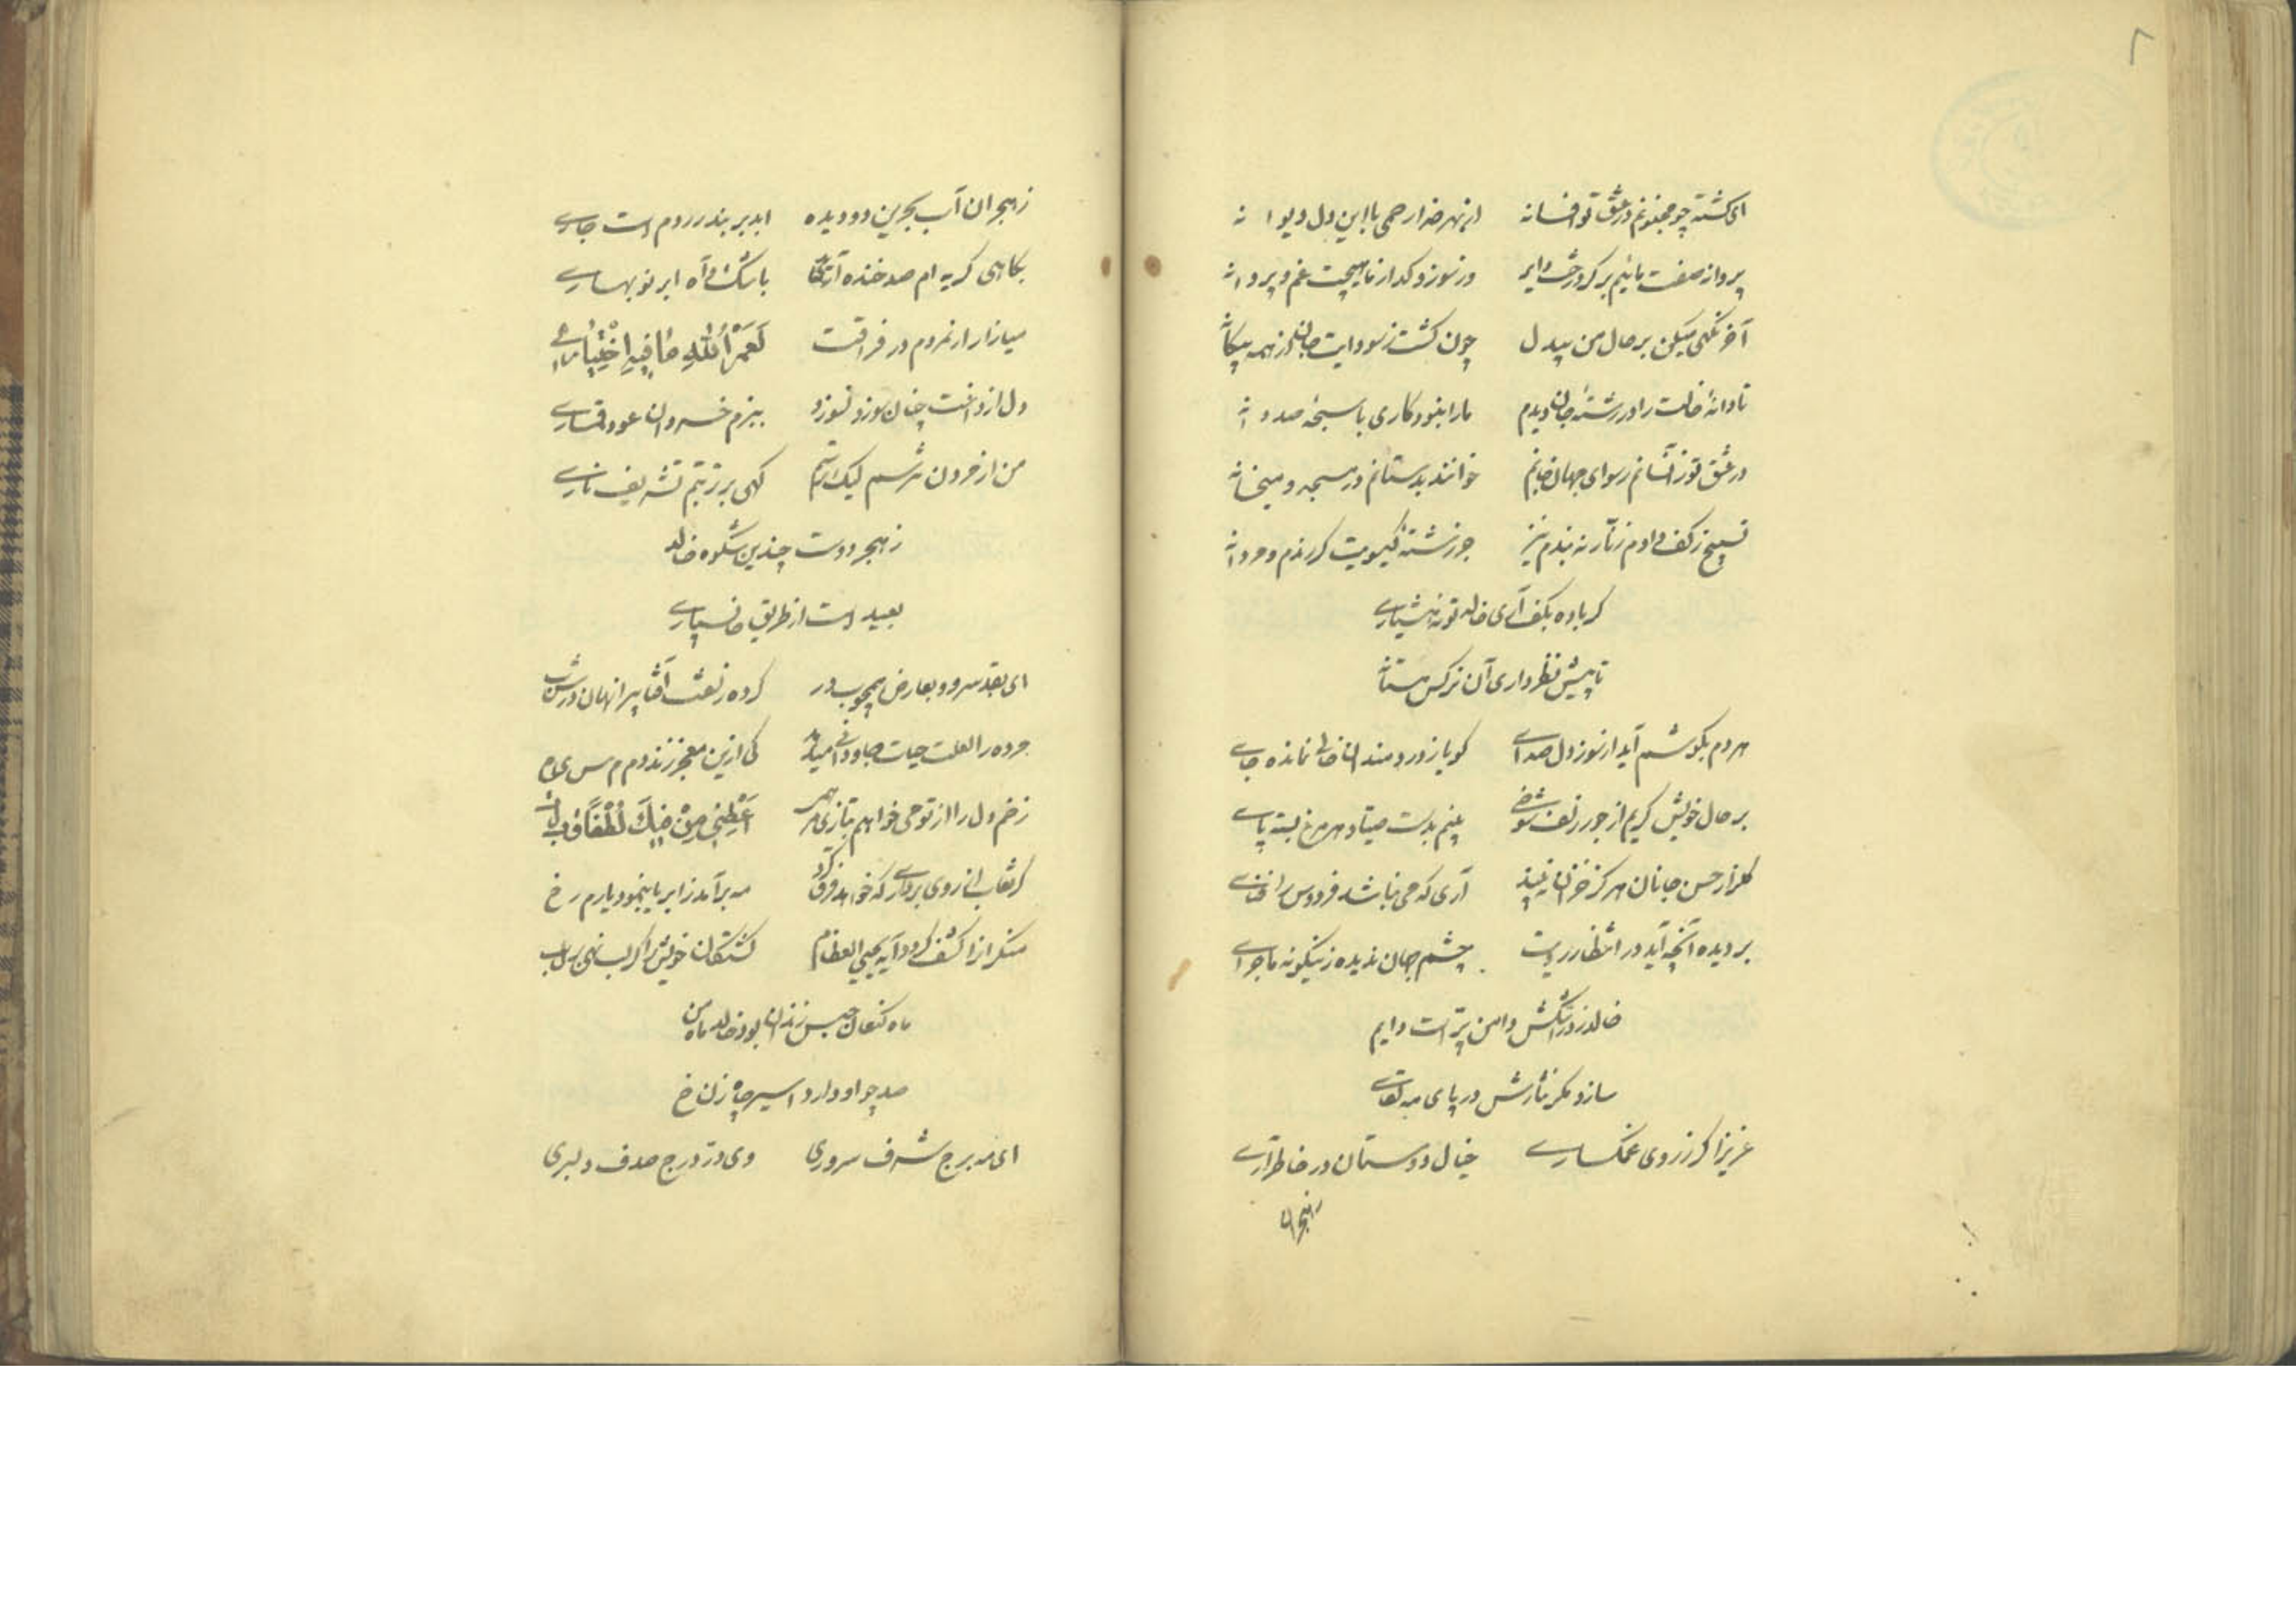 ٨
ای گشته چو مجنونم در عشق تو افسانه از بهر خدا رحمی با این دل دیوانه
پروانه صفت مائیم بر گرد رخت دایر در سوز و گداز ما هیچت غم و پروا نه
آخر نگهی میکن بر حال من بیدل چون گشت ز سودایت جانان ز همه بیگانه
تا دانهٔ خالت را در رشتهٔ جان دیدم ما را نبود کاری با سبحهٔ صد دانه
در عشق تو زانسانم رسوای جهان جانم خوانند بدستانم در مسجد و میخانه
تسبیح ز کف دادم زنّار نه بندم نیز جز رشتهٔ گیسویت گر رندم و فردانه
گر باده بکف آری خالد تو نه هشیاری
تا پیش نظر داری آن نرگس مستانه
هر دم بگوشم آید از سوز دل صدای گویا ز دردمندان خالی نمانده جای
بر حال خویش گریم از جور زلف شوخی بینم بدست صیّاد هر مرغ بسته پای
گلزار حسن جانان هرگز خزان نبیند آری که می نباشد فردوس را فنای
بر دیده آنچه آید در انتظار رویت چشم جهان ندیده زینگونه ماجرای
خالد ز درّ اشکش دامن پر است دایم
سازد مگر نثارش در پای مه لقای
عزیزا گر ز روی غمگساری خیال دوستان در خاطر آری
زهجران
زهجران آب بحرین دو دیده ابد بر بندر روم است جاری
بگاهی گریه ام صد خنده آرد باشک و آه ابر نوبهاری
میازار ار نمردم در فراقت لَعَمْرُ اللهِ مَا فِيهِ اخْتِيَارِي
دل از داغت چنان سوزد نسوزد ببزم خسروان عود قماری
من از مردن نترسم لیک ترسم گهی بر تربتم تشریف ناری
زهجر دوست چندین شکوه خالد
بعید است از طریق جانسپاری
ای بقد سرو و بعارض همچو بدر کرده زلفت آفتابی را نهان در شب
مرده را لعلت حیات جاودانی میدهد کی ازین معجز زند دم
زخم دل را از تو می خواهم أَعْطِنِي مِنْ فِيكَ لُطْفًا
گر نقاب از روی برداری که خواهد فرق کرد مه برآمد ز ابر یا بنمود یارم رخ
منکران را کشف گردد آیهٔ یحیی العظام کشتگان خویش را گر لب نهی بر لب
ماه کنعان حبس زندان بود خالد ماه من
صد چو او دارد اسیر چاه زنخ
ای مه برج شرف سروری وی درّ درج صدف دلبری